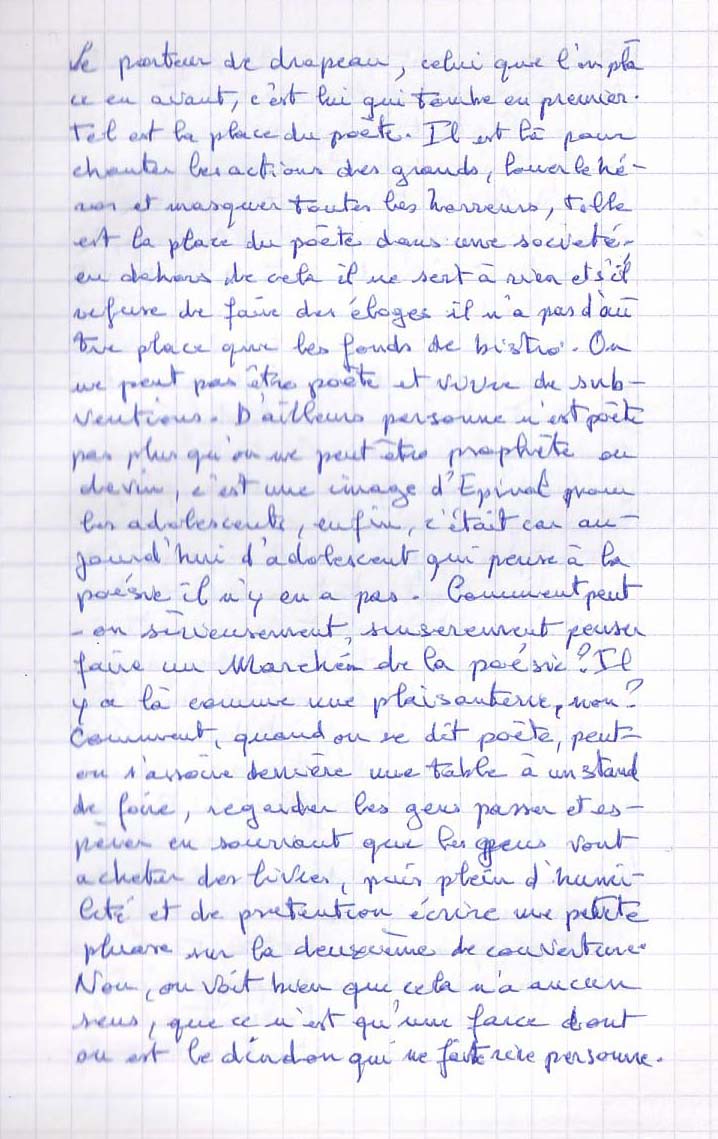 Le porteur de drapeau, celui que l'on pla
ce en avant, c'est lui qui tombe en premier.
Tel est la place du poète. Il est là pour
chanter les actions des grands, louer le hé-
ros et masquer toutes les horreurs, telle
est la place du poète dans une société,
en dehors de cela il ne sert à rien et s'il
refuse de faire des éloges il n'a pas d'au
tre place que les fonds de bistro. On
ne peut pas être poète et vivre de sub-
ventions. D'ailleurs personne n'est poète
pas plus qu'on ne peut être prophète ou
devin, c'est une image d'Epinal pour
les adolescents, enfin, c'était car au-
jourd'hui d'adolescent qui pense à la
poésie il n'y en a pas. Comment peut
-on sérieusement, sinserement penser
faire un Marché de la poésie? Il
y a là comme une plaisanterie, non?
Comment, quand on se dit poète, peut-
on s'assoire derrière une table à un stand
de foire, regarder les gens passer et es-
pérer en souriant que les gens vont
acheter des livres, puis plein d'humi-
lité et de prétention écrire une petite
phrase sur la deuxième de couverture.
Non, on voit bien que cela n'a aucun
sens, que ce n'est qu'une farce dont
on est le dindon qui ne fait rire personne.